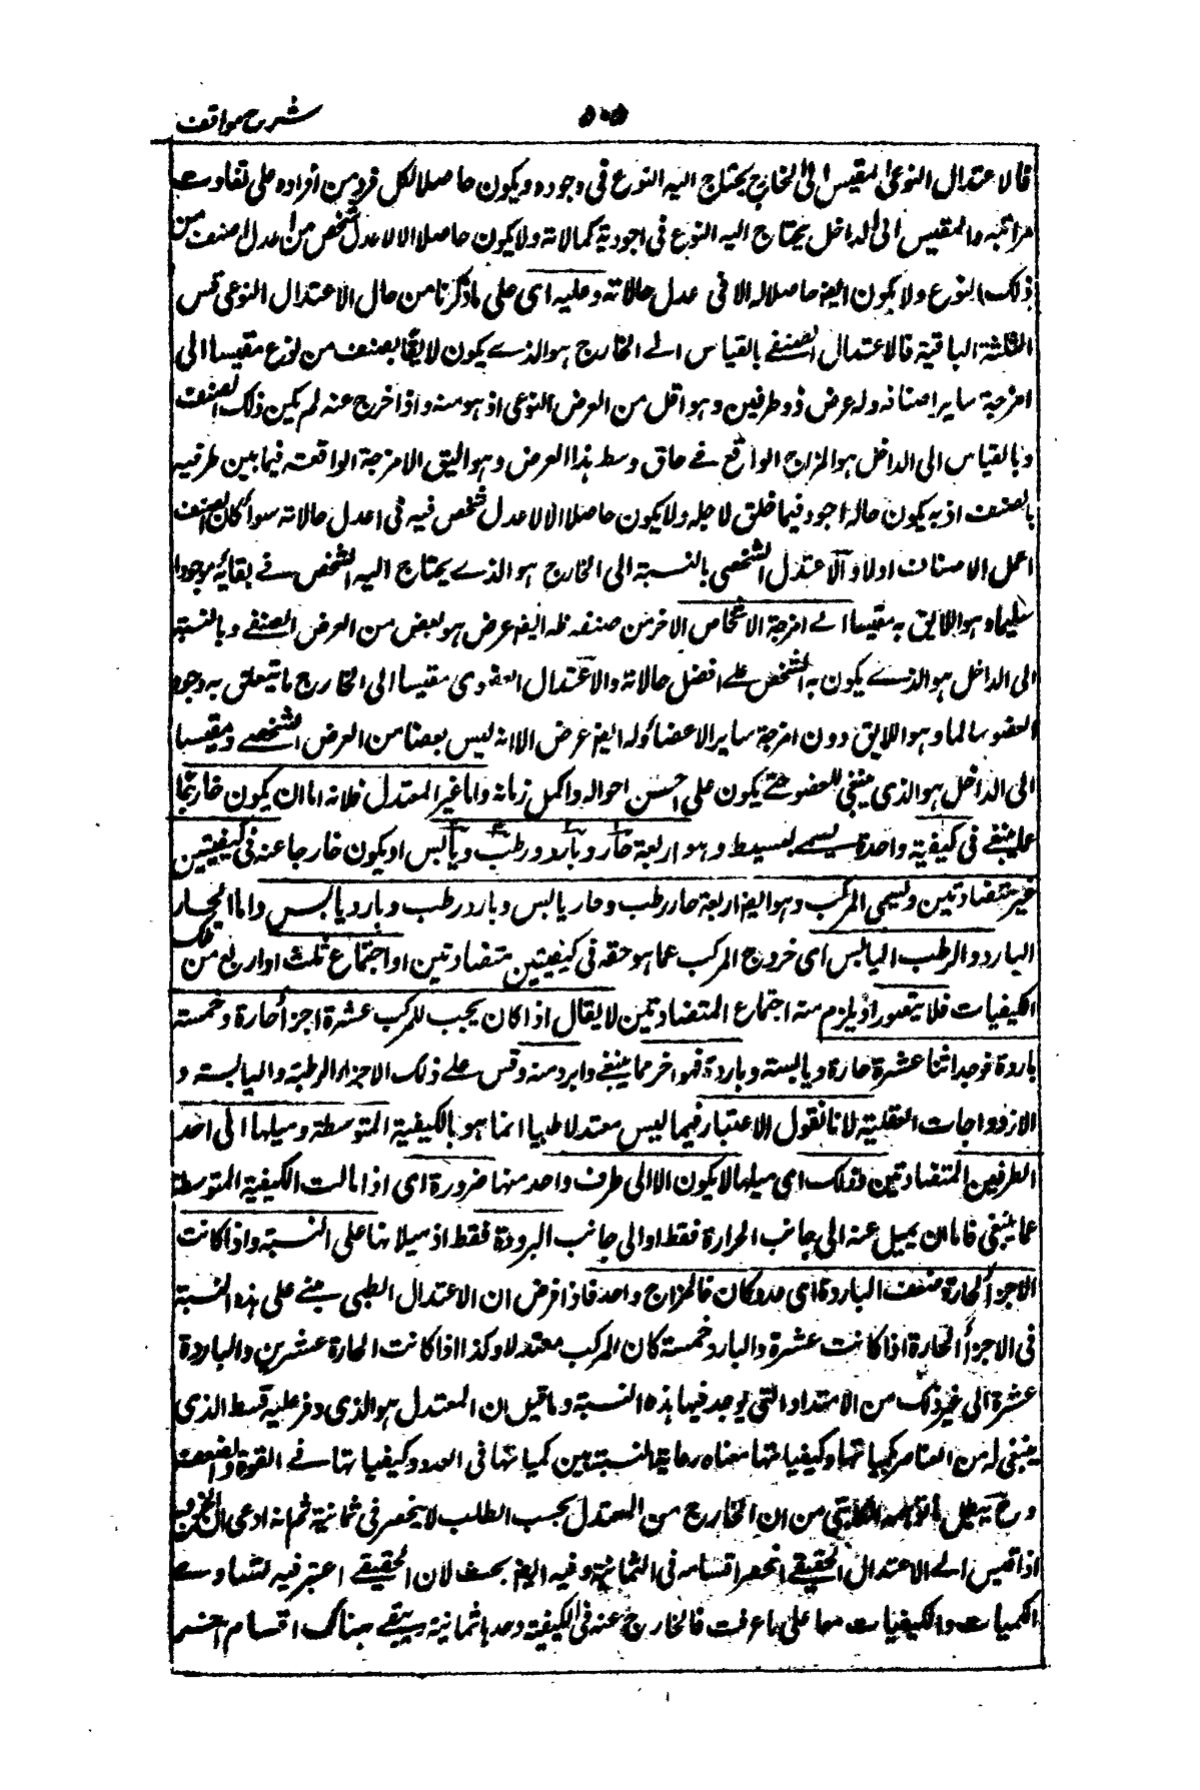 شرح مواقف
٥٠٥
فالاعتدال النوعى المقيس الى الخارج يحتاج اليه النوع فى وجوده ويكون حاصلا لكل فرد من افراده على تفاوت
مراتبه والمقيس الى الداخل يحتاج اليه النوع فى اجودية كمالاته ولا يكون حاصلا الا لاعدل شخص من اعدل صنف من
ذلك النوع ولا يكون ايضا حاصلا له الا فى اعدل حالاته وعليه اى على ماذكرنا من حال الاعتدال النوعى قس
الثلثة الباقية فالاعتدال الصنفے بالقياس الے الخارج هو الذے يكون لايقا بصنف من نوع مقيسا الى
امزجة ساير اصنافه وله عرض ذو طرفين وهو اقل من العرض النوعى اذ هو منه واذا خرج عنه لم يكن ذلك الصنف
وبالقياس الى الداخل هو المزاج الواقع فے حاق وسط هذا العرض وهو اليق الامزجة الواقعة فيما بين طرفيه
بالصنف اذ به يكون حاله اجود فيما خلق لاجله ولا يكون حاصلا الا لاعدل شخص فيه فى اعدل حالاته سوأ كان الصنف
اعدل الاصناف اولا والاعتدل الشخصى بالنسبة الى الخارج هو الذے يحتاج اليه الشخص فے بقائه موجودا
سليما وهو اللايق به مقيسا الے امزجة الاشخاص الاخر من صنفه وله ايضا عرض هو بعض من العرض الصنفے وبالنسبة
الى الداخل هو الذے يكون به الشخص علے افضل حالاته والاعتدال العضوى مقيسا الى الخارج ما يتعلق به وجود
العضو سالما وهو اللايق دون امزجة ساير الاعضاء وله ايضا عرض الا انه ليس بعضا من العرض الشخصے ومقيسا
الى الداخل هو الذى ينبغى للعضو حتے يكون على احسن احواله واكمل زمانه واما غير المعتدل فلانه اما ان يكون خارجا
عما ينبغے فى كيفية واحدة ويسمے البسيط وهو اربعة حار وبارد ورطب ويابس او يكون خارجا عنه فى كيفيتين
غير متضادتين ويسمى المركب وهو ايضا اربعة حار رطب وحار يابس وبارد رطب وبارد يابس واما الحار
البارد والرطب اليابس اى خروج المركب عما هو حقه فى كيفيتين متضادتين او اجتماع ثلث او اربع من تلك
الكيفيات فلا يتصور اذ يلزم منه اجتماع المتضادتين لا يقال اذا كان يجب للمركب عشرة اجزأ حارة وخمسة
باردة فوجد اثنا عشرة حارة ويابسته وباردة فهو اخر مما ينبغے وابرد منه وقس علے ذلك الاجزاء الرطبة واليابسته و
الازدواجات العقلية لانا نقول الاعتبار فيما ليس معتدلا طبيا انما هو بالكيفية المتوسطة وميلها الى احد
الطرفين المتضادتين وذلك اى ميلها لا يكون الا الى طرف واحد منها ضرورة اى اذا مالت الكيفية المتوسطة
عما ينبغى فاما ان يميل عنه الى جانب الحرارة فقط او الى جانب البرودة فقط اذ ميلانها على النسبة واذا كانت
الاجزأ الحارة ضعف الباردة اى عدد كان فالمزاج واحد فاذا فرض ان الاعتدال الطبى مبنے على هذه النسبة
فى الاجزأ الحارة اذا كانت عشرة والبارد خمسة كان المركب معتدلا وكذا اذا كانت الحارة عشرين والباردة
عشرة الى غير ذلك من الاعتداد التى يوجد فيها بذه النسبة وما قيل ان المعتدل هو الذى وفر عليه قسط الذى
ينبغى له من العناصر كمياتها وكيفياتها معناه رعاية النسبة بين كمياتها فى العدد وكيفياتها فے القوة والضعف
وح يبطل ما توهمه الكاتبى من ان الخارج من المعتدل بحسب الطلب لا ينحصر فى ثمانية ثم انه ادعى ان الخروج
اذا قيس الے الاعتدال الحقيقے انحصر اقسامه فى الثمانية وفيه ايضا بحث لان الحقيقے اعتبر فيه تساوے
الكميات والكيفيات معا على ما عرفت فالخارج عنه فى الكيفية وحدها ثمانية ويبقے هناك اقسام اخر